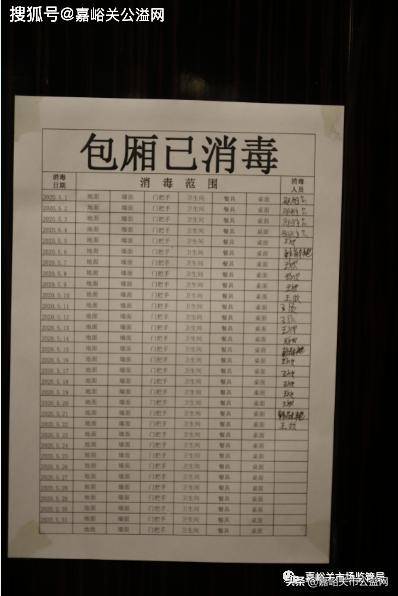 搜狐号@嘉峪关公溢网
包厢已消毒
消毒日期 消毒范围 消毒人员
2020.5.1 地面 墙面 门把手 卫生间 餐具 桌面
2020.5.2 地面 墙面 门把手 卫生间 餐具 桌面
2020.5.3 地面 墙面 门把手 卫生间 餐具 桌面
2020.5.4 地面 墙面 门把手 卫生间 餐具 桌面
2020.5.5 地面 墙面 门把手 卫生间 餐具 桌面
2020.5.6 地面 墙面 门把手 卫生间 餐具 桌面
2020.5.7 地面 墙面 门把手 卫生间 餐具 桌面
2020.5.8 地面 墙面 门把手 卫生间 餐具 桌面
2020.5.9 地面 墙面 门把手 卫生间 餐具 桌面
2020.5.10 地面 墙面 门把手 卫生间 餐具 桌面
2020.5.11 地面 墙面 门把手 卫生间 餐具 桌面
2020.5.12 地面 墙面 门把手 卫生间 餐具 桌面
2020.5.13 地面 墙面 门把手 卫生间 餐具 桌面
2020.5.14 地面 墙面 门把手 卫生间 餐具 桌面
2020.5.15 地面 墙面 门把手 卫生间 餐具 桌面
2020.5.16 地面 墙面 门把手 卫生间 餐具 桌面
2020.5.17 地面 墙面 门把手 卫生间 餐具 桌面
2020.5.18 地面 墙面 门把手 卫生间 餐具 桌面
2020.5.19 地面 墙面 门把手 卫生间 餐具 桌面
2020.5.20 地面 墙面 门把手 卫生间 餐具 桌面
2020.5.21 地面 墙面 门把手 卫生间 餐具 桌面
2020.5.22 地面 墙面 门把手 卫生间 餐具 桌面
2020.5.23 地面 墙面 门把手 卫生间 餐具 桌面
2020.5.24 地面 墙面 门把手 卫生间 餐具 桌面
2020.5.25 地面 墙面 门把手 卫生间 餐具 桌面
2020.5.26 地面 墙面 门把手 卫生间 餐具 桌面
2020.5.27 地面 墙面 门把手 卫生间 餐具 桌面
2020.5.28 地面 墙面 门把手 卫生间 餐具 桌面
2020.5.29 地面 墙面 门把手 卫生间 餐具 桌面
2020.5.30 地面 墙面 门把手 卫生间 餐具 桌面
2020.5.31 地面 墙面 门把手 卫生间 餐具 桌面
地面 墙面 门把手 卫生间 餐具 桌面
嘉峪关市场监管局
头条@嘉峪关市公溢网